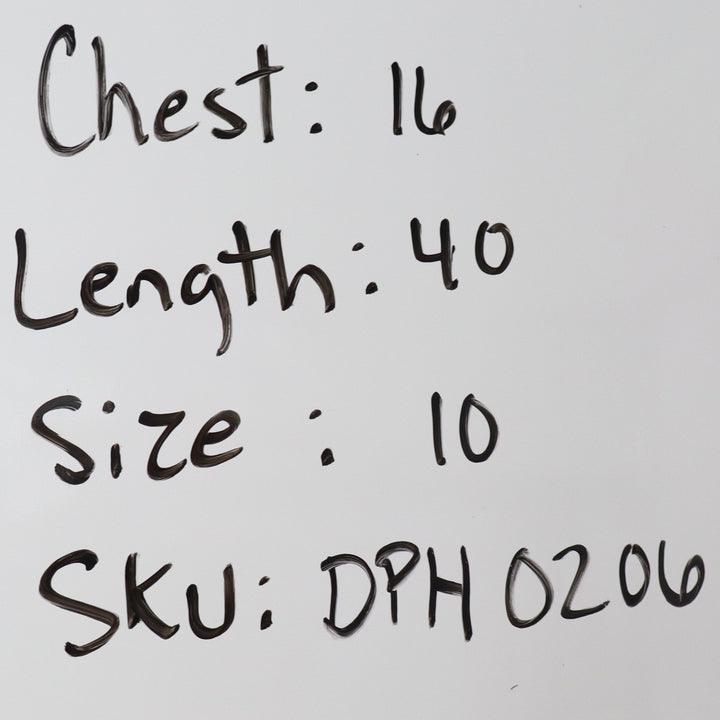 Chest: 16
Length: 40
Size: 10
SKU: DPH0206